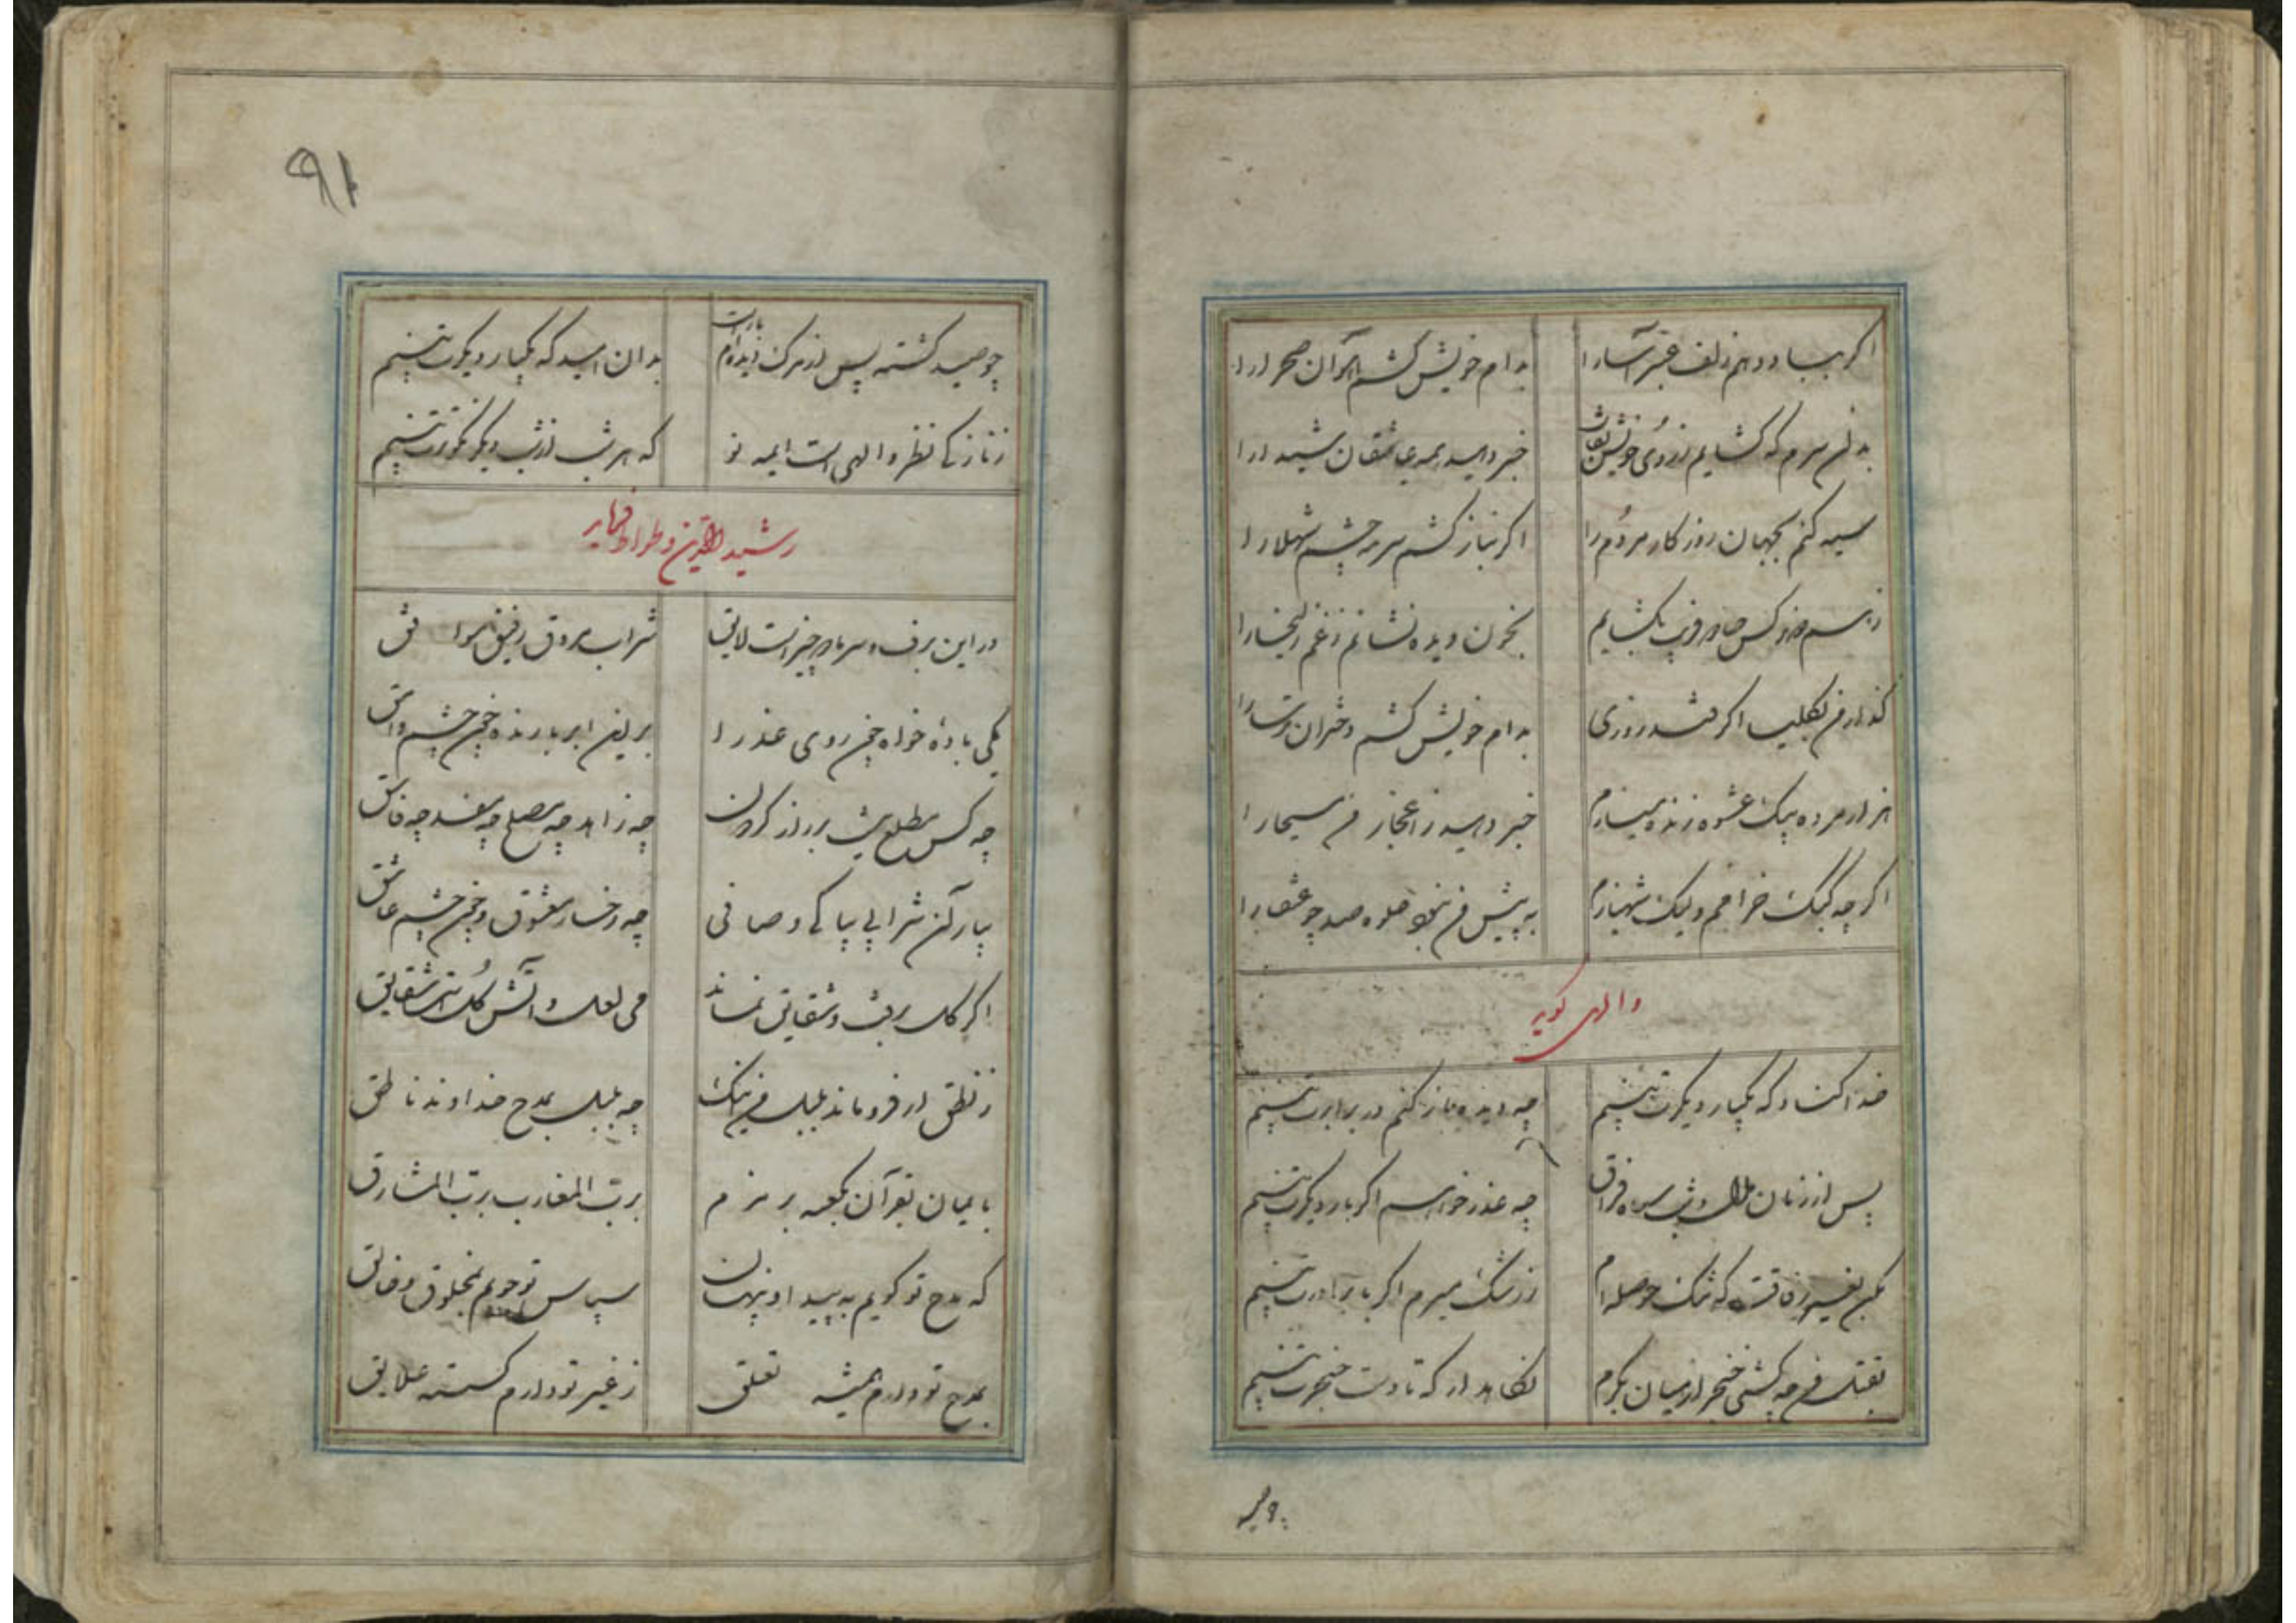 اگر بباد دهم زلف عنبرآسا را بدام خویش کشم آهوان صحرا را
بدان سرم که گشایم ز روی خویش نقاب خبر دهید همه عاشقان شیدا را
سیه کنم بجهان روزگار مردم را اگر بناز کشم سرمه چشم شهلا را
ز هم دو نرگس جادو فریب بگشایم بخون دیده نشانم ز غم زلیخا را
گذار من بکلیسا اگر فتد روزی بدام خویش کشم دختران ترسا را
هزار مرده بیک عشوه زنده میسازم خبر دهید ز اعجاز من مسیحا را
اگر چه کبک خرامم ولیک شهبازم به پیش من نبود جلوه صد چو عنقا را
والهی گوید
خدا کناد که یکبار دیگرت بینم چه دیده باز کنم در برابرت بینم
پس از زمان ملال و شب سیاه فراق چه عذر خواهم اگر بار دیگرت بینم
مکن بغیر که تنک حوصله‌ام ز رشک میرم اگر با برادرت بینم
بقتل من چه کشی خنجر از میان بکرم نگاهدار که تا دست و خنجرت بینم
چو صید کشته پس از مرگ دیده‌ام بازست بدان امید که یکبار دیگرت بینم
که هر شب از شب دیگر نکوترت بینم
رشید الدین وطواط فرماید
در این برف و سرما دو چیز است لایق شراب مروق رفیق موافق
یکی باده خواه چون روی عذرا بر این ابر بارنده چون چشم وامق
چه کس مطلع نیست بر راز گردون چه زاهد چه مصلح چه مفسد چه فاسق
بیار آن شرابی بپاکی و صافی چه رخسار معشوق و چون چشم عاشق
اگر گل برفت و شقایق نماند می لعل و آتش گل است شقایق
ز نطق ار فرو ماند بلبل من اینک چه بلبل بمدح خداوند ناطق
بایمان بقرآن بکعبه بزمزم برب المغارب برب المشارق
که مدح تو گویم به پیدا و پنهان سپاس تو جویم بمخلوق و خالق
بمدح تو دارم همیشه تعلق ز غیر تو دارم گسسته علایق